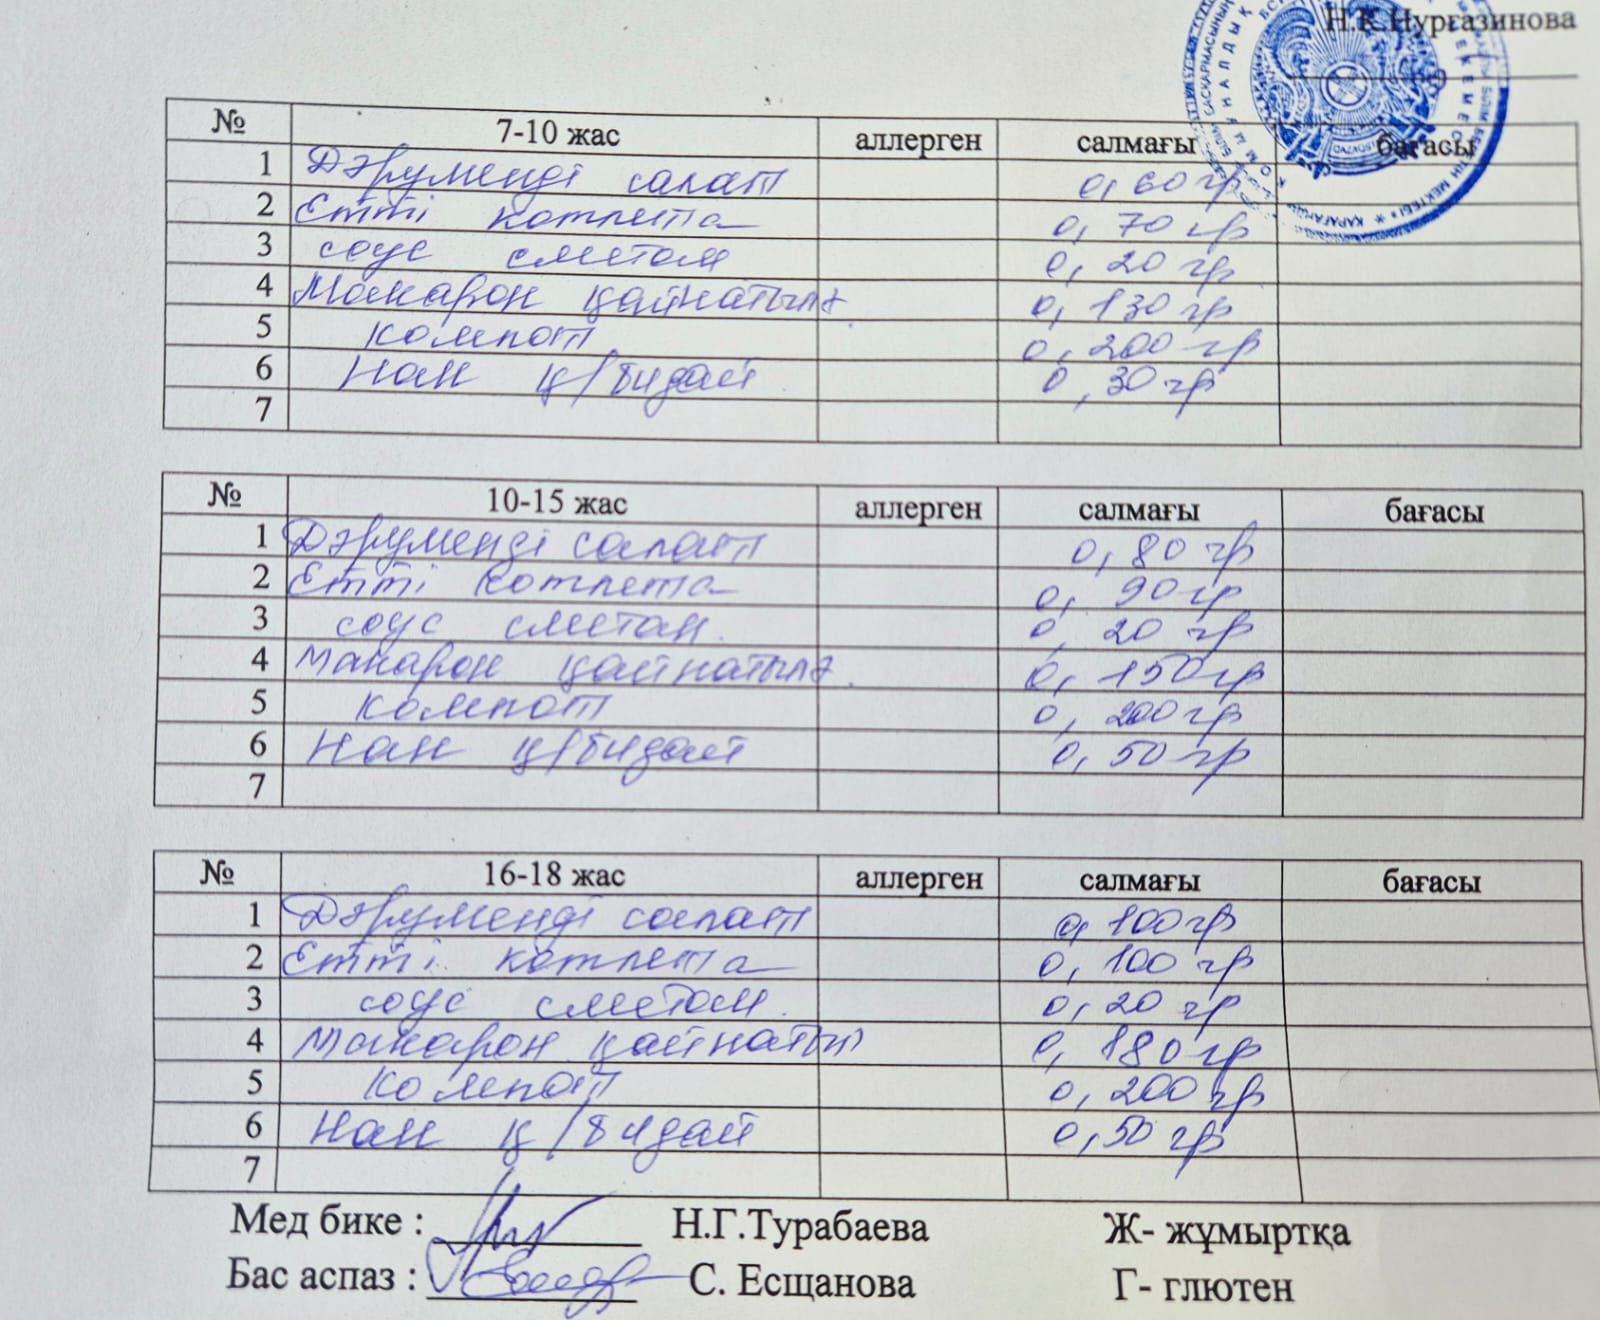 Н.К.Нургазинова
№ 7-10 жас аллерген салмағы бағасы
1 Дәруменді салат 0,60 гр
2 Етті котлета 0,70 гр
3 соус сметан 0,20 гр
4 Макарон қайнатылғ. 0,130 гр
5 компот 0,200 гр
6 Нан қ/бидай 0,30 гр
7
№ 10-15 жас аллерген салмағы бағасы
1 Дәруменді салат 0,80 гр
2 Етті котлета 0,90 гр
3 соус сметан. 0,20 гр
4 Макарон қайнатылғ. 0,150 гр
5 компот 0,200 гр
6 Нан қ/бидай 0,50 гр
7
№ 16-18 жас аллерген салмағы бағасы
1 Дәруменді салат 0,100 гр
2 Етті котлета 0,100 гр
3 соус сметан. 0,20 гр
4 Макарон қайнатыл 0,180 гр
5 компот 0,200 гр
6 Нан қ/бидай 0,50 гр
7
Мед бике : Н.Г.Турабаева Ж- жұмыртқа
Бас аспаз : С. Есщанова Г- глютен